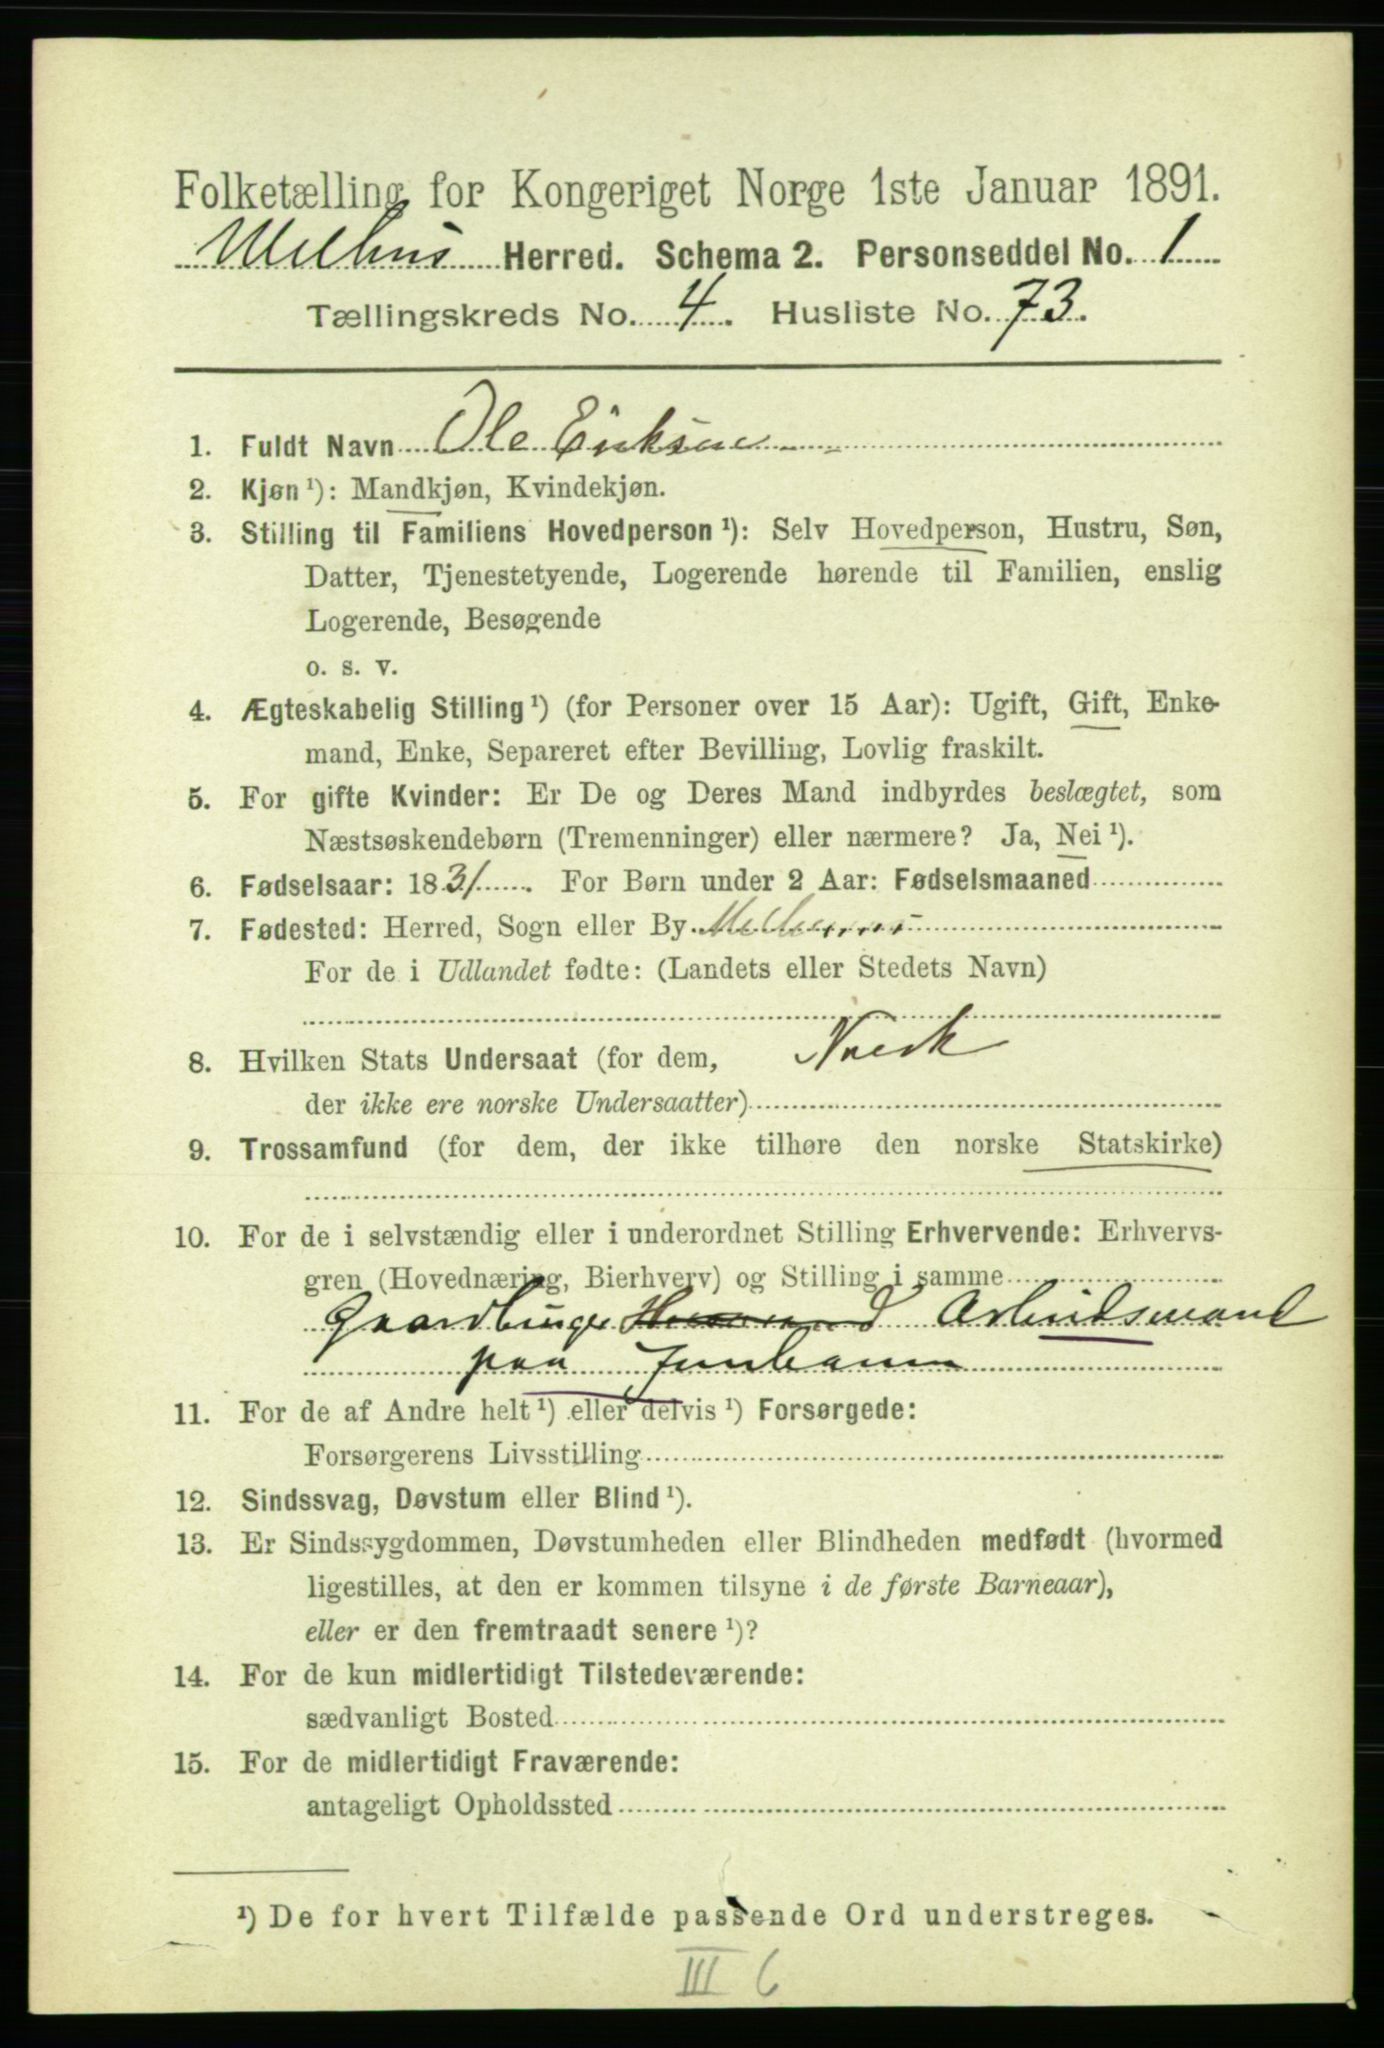 Folketælling for Kongeriget Norge 1ste Januar 1891.
Melhus Herred. Schema 2. Personseddel No. 1
Tællingskreds No. 4. Husliste No. 73.
1. Fuldt Navn Ole Eriksen
2. Kjøn ¹): Mandkjøn, Kvindekjøn.
3. Stilling til Familiens Hovedperson ¹): Selv Hovedperson, Hustru, Søn,
Datter, Tjenestetyende, Logerende hørende til Familien, enslig
Logerende, Besøgende
o. s. v.
4. Ægteskabelig Stilling ¹) (for Personer over 15 Aar): Ugift, Gift, Enke-
mand, Enke, Separeret efter Bevilling, Lovlig fraskilt.
5. For gifte Kvinder: Er De og Deres Mand indbyrdes beslægtet, som
Næstsøskendebørn (Tremenninger) eller nærmere? Ja, Nei ¹).
6. Fødselsaar: 1831. For Børn under 2 Aar: Fødselsmaaned
7. Fødested: Herred, Sogn eller By Melhus
For de i Udlandet fødte: (Landets eller Stedets Navn)
8. Hvilken Stats Undersaat (for dem, Norsk
der ikke ere norske Undersaatter)
9. Trossamfund (for dem, der ikke tilhøre den norske Statskirke)
10. For de i selvstændig eller i underordnet Stilling Erhvervende: Erhvervs-
gren (Hovednæring, Bierhverv) og Stilling i samme
Gaardbruger Arbeidsmand
paa Jernbanen
11. For de af Andre helt ¹) eller delvis ¹) Forsørgede:
Forsørgerens Livsstilling
12. Sindssvag, Døvstum eller Blind ¹).
13. Er Sindssygdommen, Døvstumheden eller Blindheden medfødt (hvormed
ligestilles, at den er kommen tilsyne i de første Barneaar),
eller er den fremtraadt senere ¹)?
14. For de kun midlertidigt Tilstedeværende:
sædvanligt Bosted
15. For de midlertidigt Fraværende:
antageligt Opholdssted
¹) De for hvert Tilfælde passende Ord understreges.
III 6